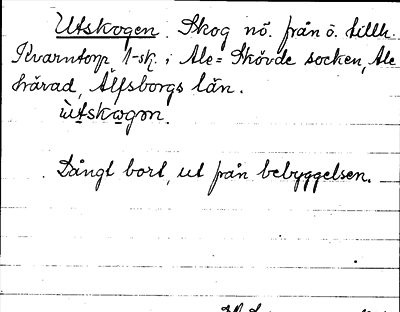 Utskogen. Skog nö. från ö. tillh.
Kvarntorp 1-sk. i Ale-Skövde socken, Ale
härad, Älfsborgs län.
ùtskogən.
Långt bort, ut från bebyggelsen.